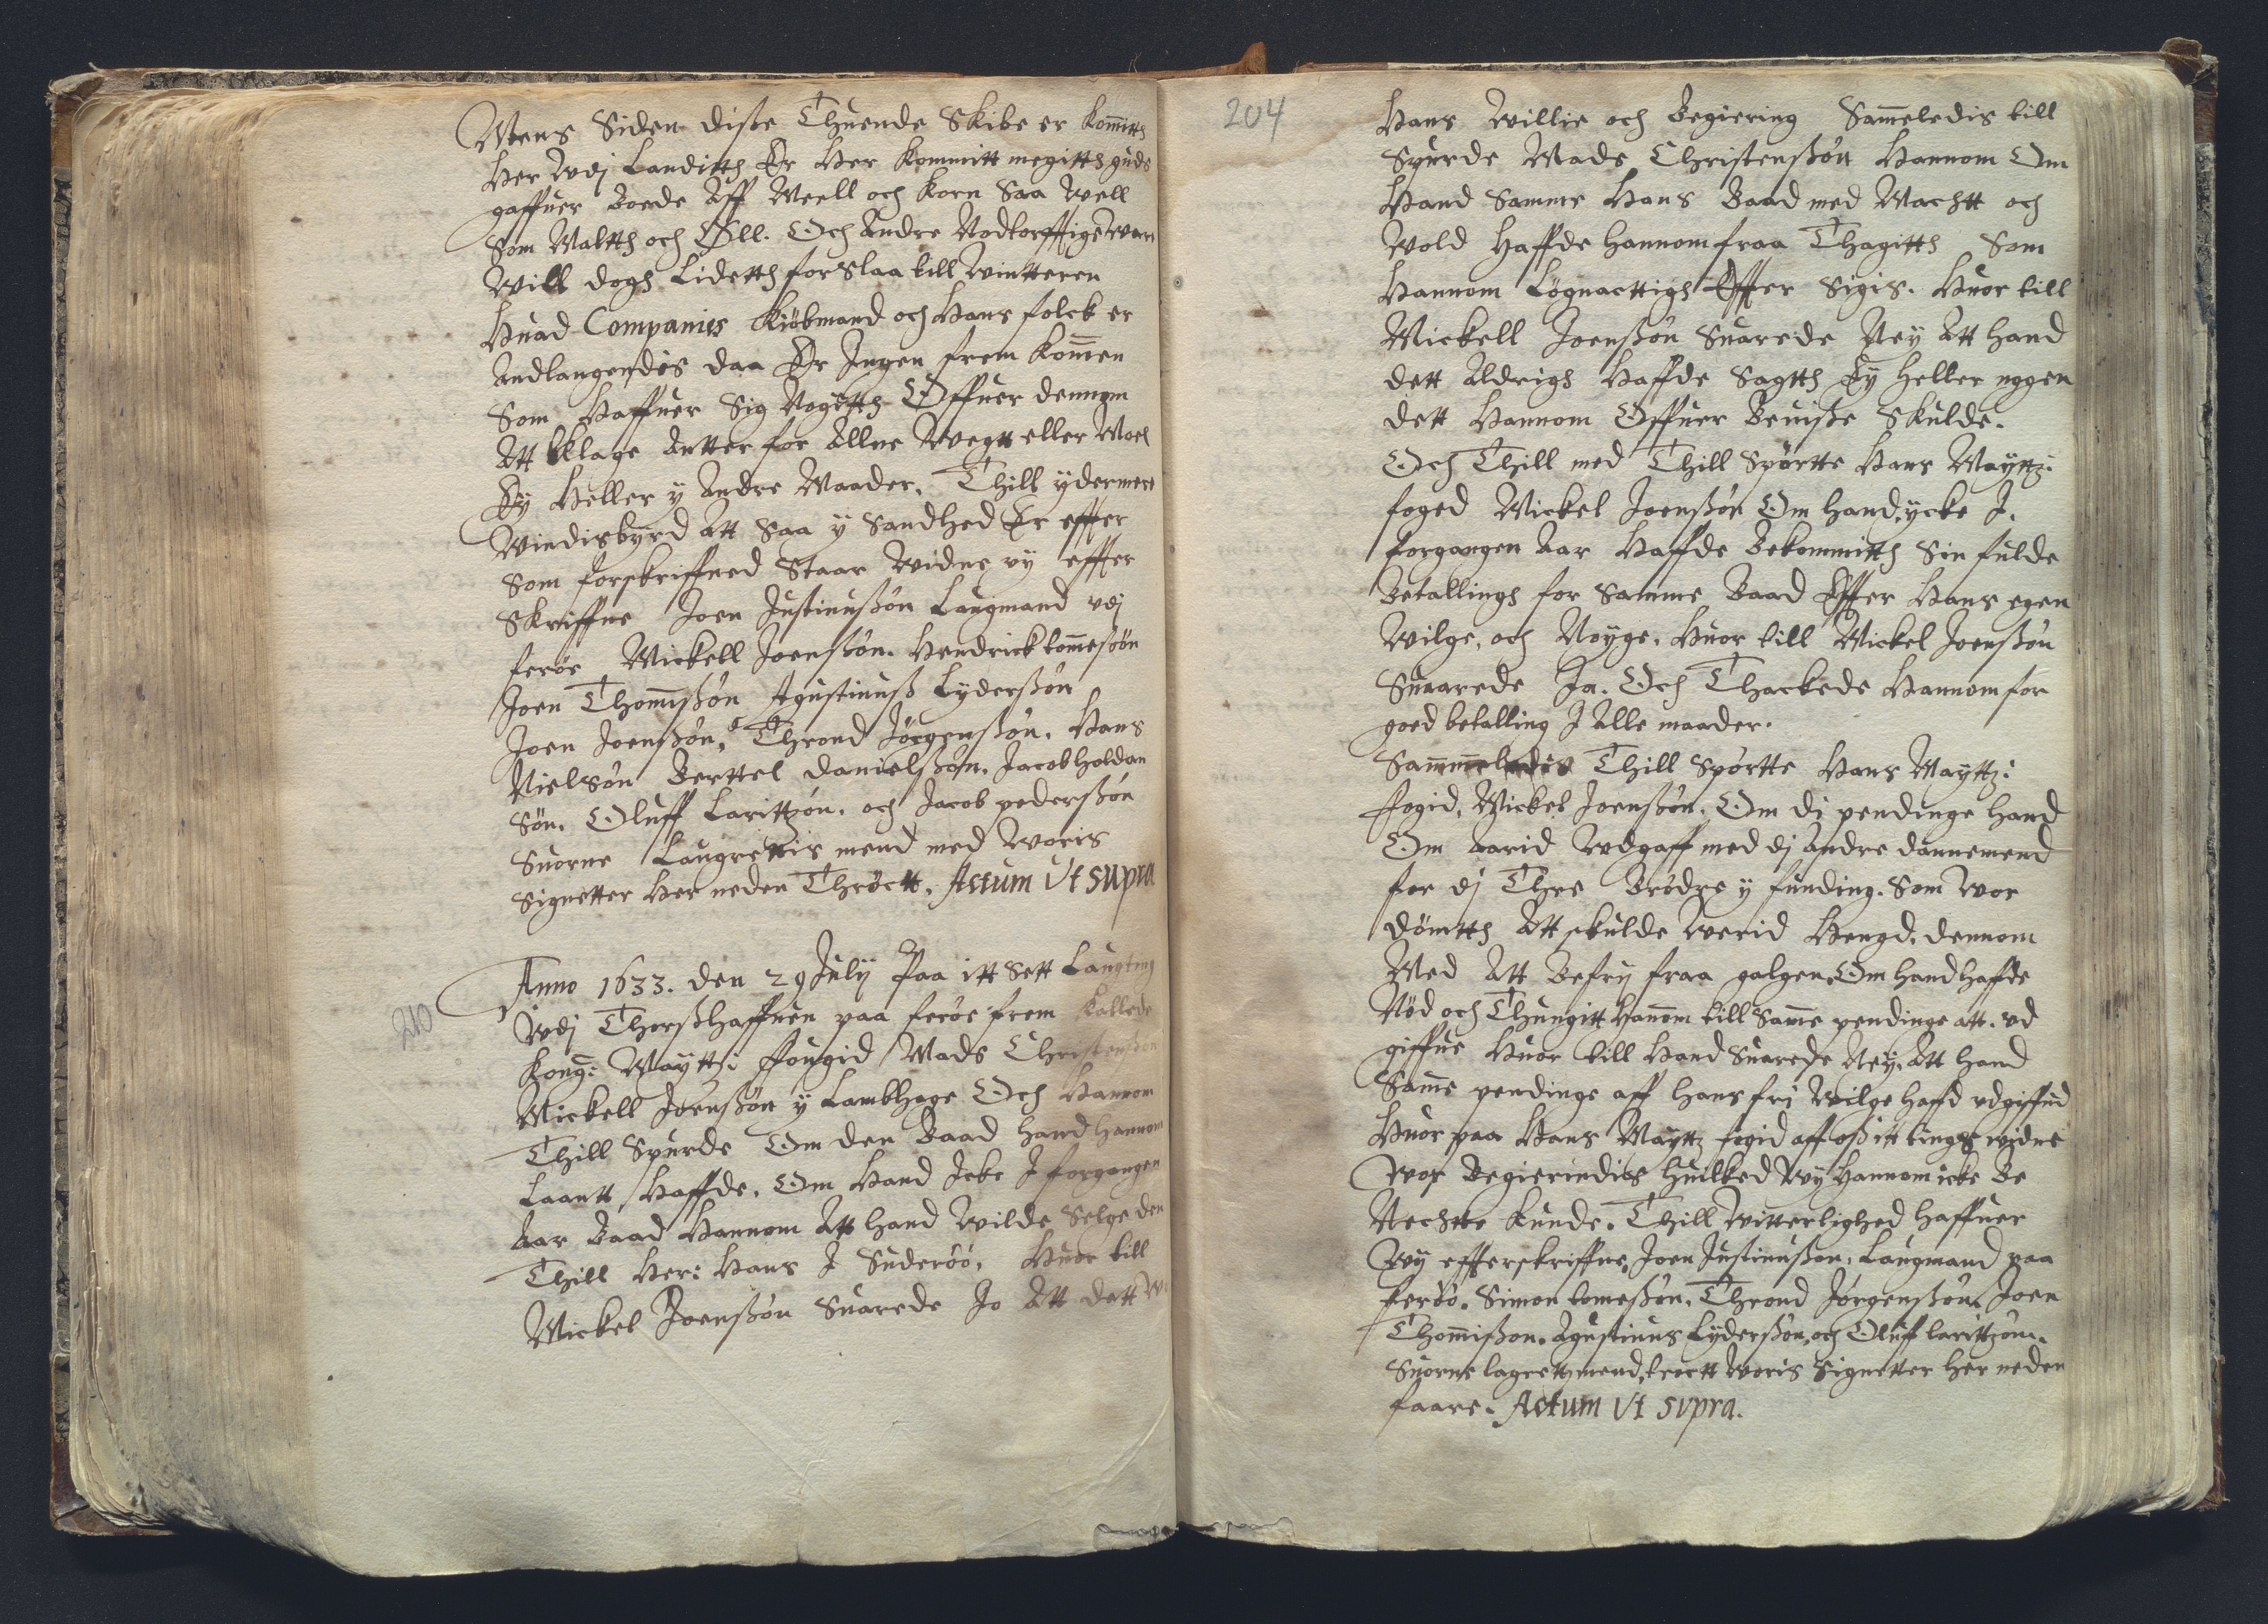 Mens Siden disße Thuende Skibe er kommitth
her wdj Landitth Er her kommitt megitth guds
gaffuer Boede Aff Meell och Korn Saa well
Som Maltth och Øll. Och Andre Nodtorfftige ware
will dogh Lidetth forslaa till wintteren
Huad Companies Kiöbmand och hans folck er
Andlangendis daa Er Ingen frem kommen
Som Haffuer Sig Nogetth Offuer dennom
Att klage Antten for Allne wegtt eller Moel
Ey Heller y Andre Maader. Thill ydermere
windisbyrd Att Saa y Sandhed Er effter
Som forskriffned Staar widne vy effter
Skriffne Joen Justinußön Laugmand vdj
ferøe Mickell Joenßön. Hendrick tommeßön
Joen Thommißön Agustinuß Lyderßön
Joen Joenßön, Thrond Jörgenßön. Hans
Nielsön Berttel Danielßön. Jacob holdan
Sön. Oluff Larittzön. och Jacob pederßön
Suorne Laugrettis mend med woris
Signetter Her neden Thröctt. Actum Vt supra
210
Anno 1633. den 29 July Paa itt Sett Laugting
wdj Thorßhaffuen paa ferøe frem kallede
Kong: Maytt: ffougid Mads Christenßön
Mickell Joenßön y Lambhage Och Hannom
Thill Spurde Om den Baad hand hannom
Laantt Haffde. Om Hand Icke I forgangen
Aar Baad Hannom Att hand wilde Selge den
Thill Her: Hans I Suderöö, Huor till
Mickel Joenßön Suarede Jo Att dett
204
Hans willie och Begiering Sammeledis till
Spurde Mads Christenßön Hannom Om
Hand Samme Hans Baad med Machtt och
wold Haffde hannom fraa Thagitth Som
Hannom Lögnacttigh Effter Sigis. Huor till
Mickell Joenßön Suarede Ney Att hand
dett Aldrigh Haffde Sagtth Ey heller nogen
dett Hannom Offuer Beuiße Skulde.
Och Thill med Thill Spörtte Hans Mayttz:
foged Mickel Joenßön Om hand ycke I.
forgangen Aar Haffde Bekommitth Sin fulde
Betallingh for Samme Baad Effter Hans egen
wilge, och Nöyge. Huor till Mickel Joenßön
Suarede Ja. Och Thackede Hannom for
goed betalling I Alle maader.
Sammeledis Thill Spörtte Hans Mayttz:
ffogid, Mickel Joenßön. Om di pendinge hand
Om Aarid wdgaff med dj Andre dannemend
for dj Thre Brödre y funding. Som wor
dömtth Att skulde werid Hengd. dennom
Med Att Befry fraa galgen Om hand haffde
Nöd och Thungitt Hannom till Samme pendinge att. vd
giffue Huor till Hand Suarede Ney. Att hand
Samme pendinge aff hans fri wilge haffd vdgiffued
Huor paa Hans Mayttz fogid aff oß itt tings widne
wor Begierindis Huilked wy Hannom icke Be
Nechtte kunde. Thill witterlighed haffuer
wy effterskriffne, Joen Justinußon, Laugmand paa
feröö. Simon tomeßön. Thrond Jörgenßön. Joen
Thommißon. Agustinus Lyderßön, och Oluff larittzön.
Suorne lagrettzmend, tröctt woris Signetter her neden
faare. Actum Vt supra.